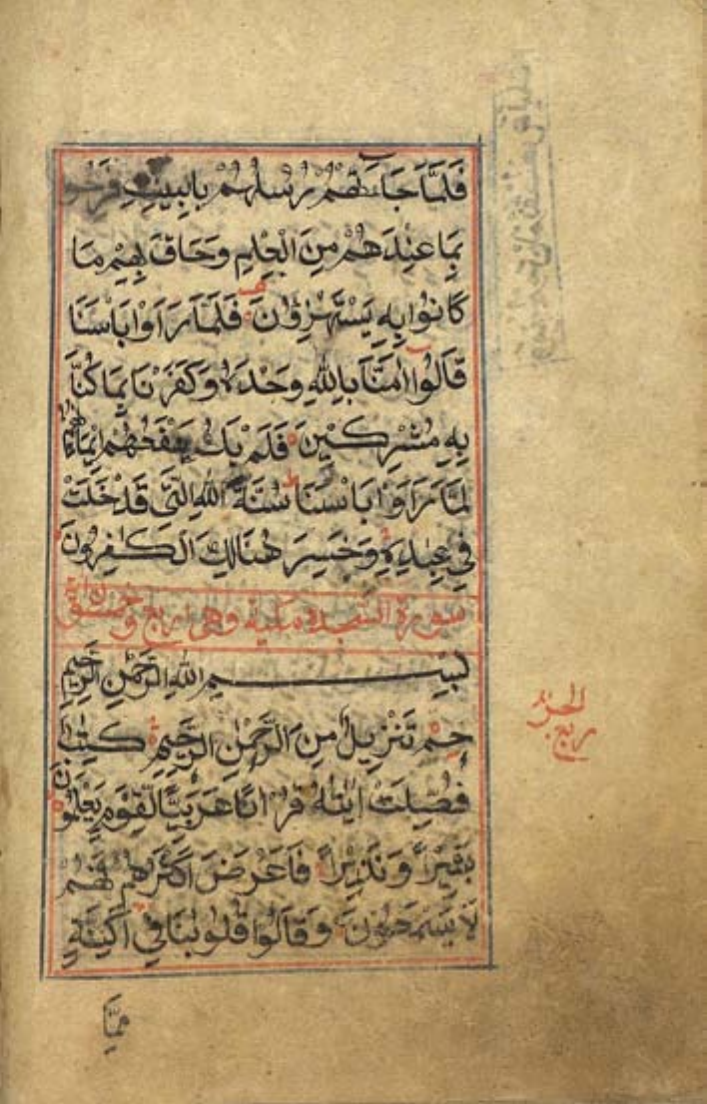 فَلَمَّا جَاءَتْهُمْ رُسُلُهُمْ بِالْبَيِّنٰتِ فَرِحُوا
بِمَا عِنْدَهُمْ مِنَ الْعِلْمِ وَحَاقَ بِهِمْ مَا
كَانُوا بِهِ يَسْتَهْزِؤُنَ فَلَمَّا رَاَوْا بَاْسَنَا
قَالُوا اٰمَنَّا بِاللّٰهِ وَحْدَهُ وَكَفَرْنَا بِمَا كُنَّا
بِهِ مُشْرِكِينَ فَلَمْ يَكُ يَنْفَعُهُمْ اِيْمَانُهُمْ
لَمَّا رَاَوْا بَاْسَنَا سُنَّةَ اللّٰهِ الَّتِي قَدْ خَلَتْ
فِي عِبَادِهِ وَخَسِرَ هُنَالِكَ الْكٰفِرُونَ
سورة السجدة مكية وهي اربع وخمسون اية
بِسْمِ اللّٰهِ الرَّحْمٰنِ الرَّحِيمِ
حٰمۤ تَنْزِيلٌ مِنَ الرَّحْمٰنِ الرَّحِيمِ كِتٰبٌ
فُصِّلَتْ اٰيٰتُهُ قُرْاٰنًا عَرَبِيًّا لِقَوْمٍ يَعْلَمُونَ
بَشِيرًا وَنَذِيرًا فَاَعْرَضَ اَكْثَرُهُمْ فَهُمْ
لَا يَسْمَعُونَ وَقَالُوا قُلُوبُنَا فِي اَكِنَّةٍ
مِمَّا
ربع
الحزب